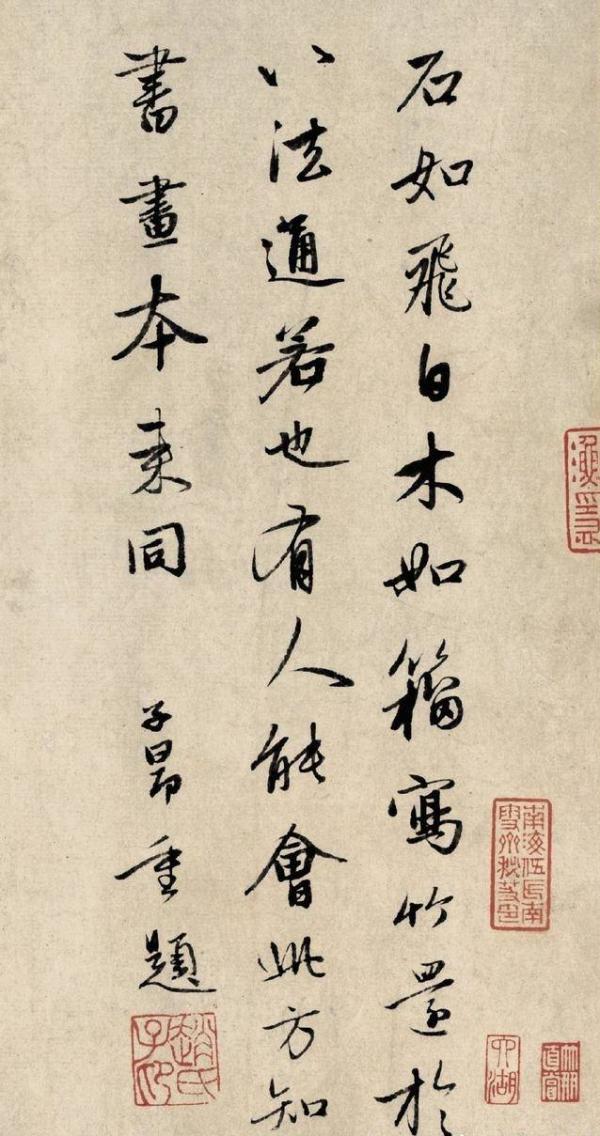 石如飛白木如籀寫竹還於
八法通若也有人能會此方知
書畫本來同
子昂重題
趙氏子昂
南海伍氏南雪齋秘笈印